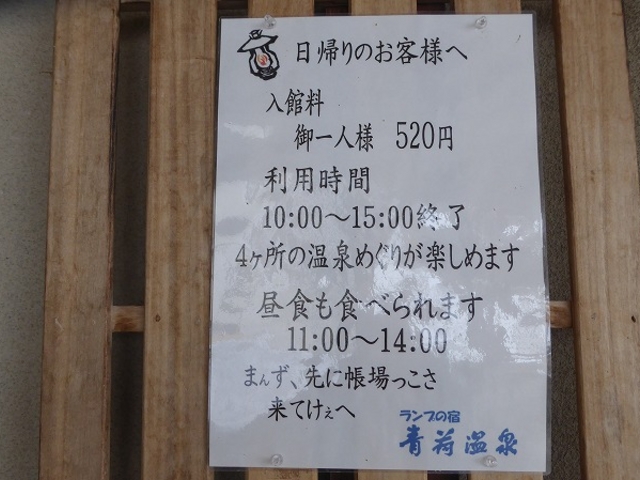 日帰りのお客様へ
入館料
御一人様 520円
利用時間
10:00～15:00終了
4ヶ所の温泉めぐりが楽しめます
昼食も食べられます
11:00～14:00
まんず、先に帳場っこさ
来てけぇへ
ランプの宿
青荷温泉